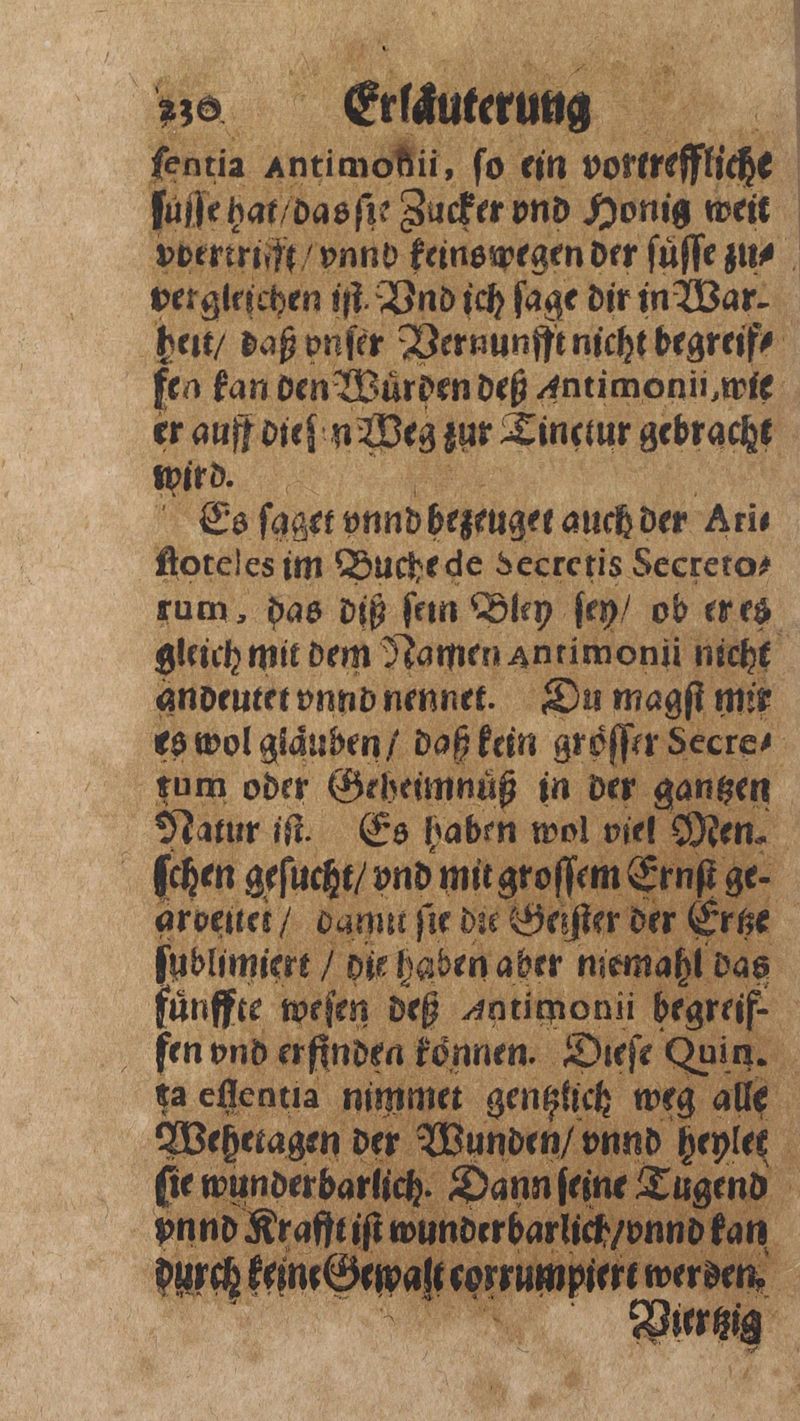 230 Erläuterung
ſentia Antimonii, ſo ein vortreffliche
ſüſſe hat / das ſie Zucker vnd Honig weit
vbertrifft / vnnd keinswegen der ſüſſe zu⸗
vergleichen iſt. Vnd ich ſage dir in War-
heit / daß vnſer Vernunfft nicht begreif⸗
fen kan den Würden deß Antimonii, wie
er auff dieſ n Weg zur Tinctur gebracht
wird.
Es ſaget vnnd bezeuget auch der Ari⸗
ſtoteles im Buche de Secretis Secreto⸗
rum, das diß ſein Bley ſey / ob er es
gleich mit dem Namen Antimonii nicht
andeutet vnnd nennet. Du magſt mir
es wol gläuben / daß kein gröſſer Secre⸗
tum oder Geheimnüß in der gantzen
Natur iſt. Es haben wol viel Men-
ſchen geſucht / vnd mit groſſem Ernſt ge-
arbeitet / damit ſie die Geiſter der Ertze
ſublimiert / die haben aber niemahl das
fünffte weſen deß Antimonii begreif-
fen vnd erfinden können. Dieſe Quin-
ta eſſentia nimmet gentzlich weg alle
Wehetagen der Wunden / vnnd heylet
ſie wunderbarlich. Dann ſeine Tugend
vnnd Krafft iſt wunderbarlich / vnnd kan
durch keine Gewalt corrumpiert werden.
Viertzig